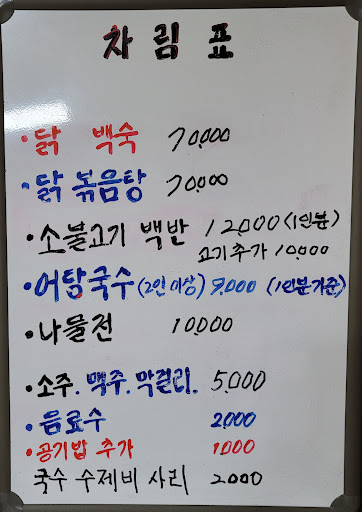 차림표
·닭 백숙 70,000
·닭볶음탕 70,000
·소불고기 백반 12,000 (1인분)
고기추가 10,000
·어탕국수 (2인이상) 9,000 (1인분기준)
·나물전 10,000
·소주. 맥주. 막걸리. 5,000
·음료수 2,000
·공기밥 추가 1,000
국수 수제비 사리 2,000